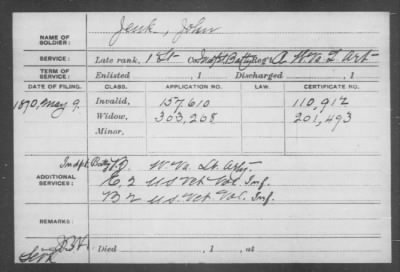 NAME OF SOLDIER: Jenk, John
SERVICE: Late rank, 1 Lt Co. Indpt. Batty Reg't A. W. Va. L Art
TERM OF SERVICE: Enlisted , 1 Discharged , 1
DATE OF FILING. CLASS. APPLICATION NO. LAW. CERTIFICATE NO.
1870, May 9. Invalid, 157,610 110,912
Widow, 303,208 201,493
Minor,
ADDITIONAL SERVICES: Indpt. Batty D. W. Va. Lt. Arty.
E, 2 US Vet Vol. Inf.
B 2 U.S. Vet. Vol. Inf.
REMARKS:
Died , 1 , at